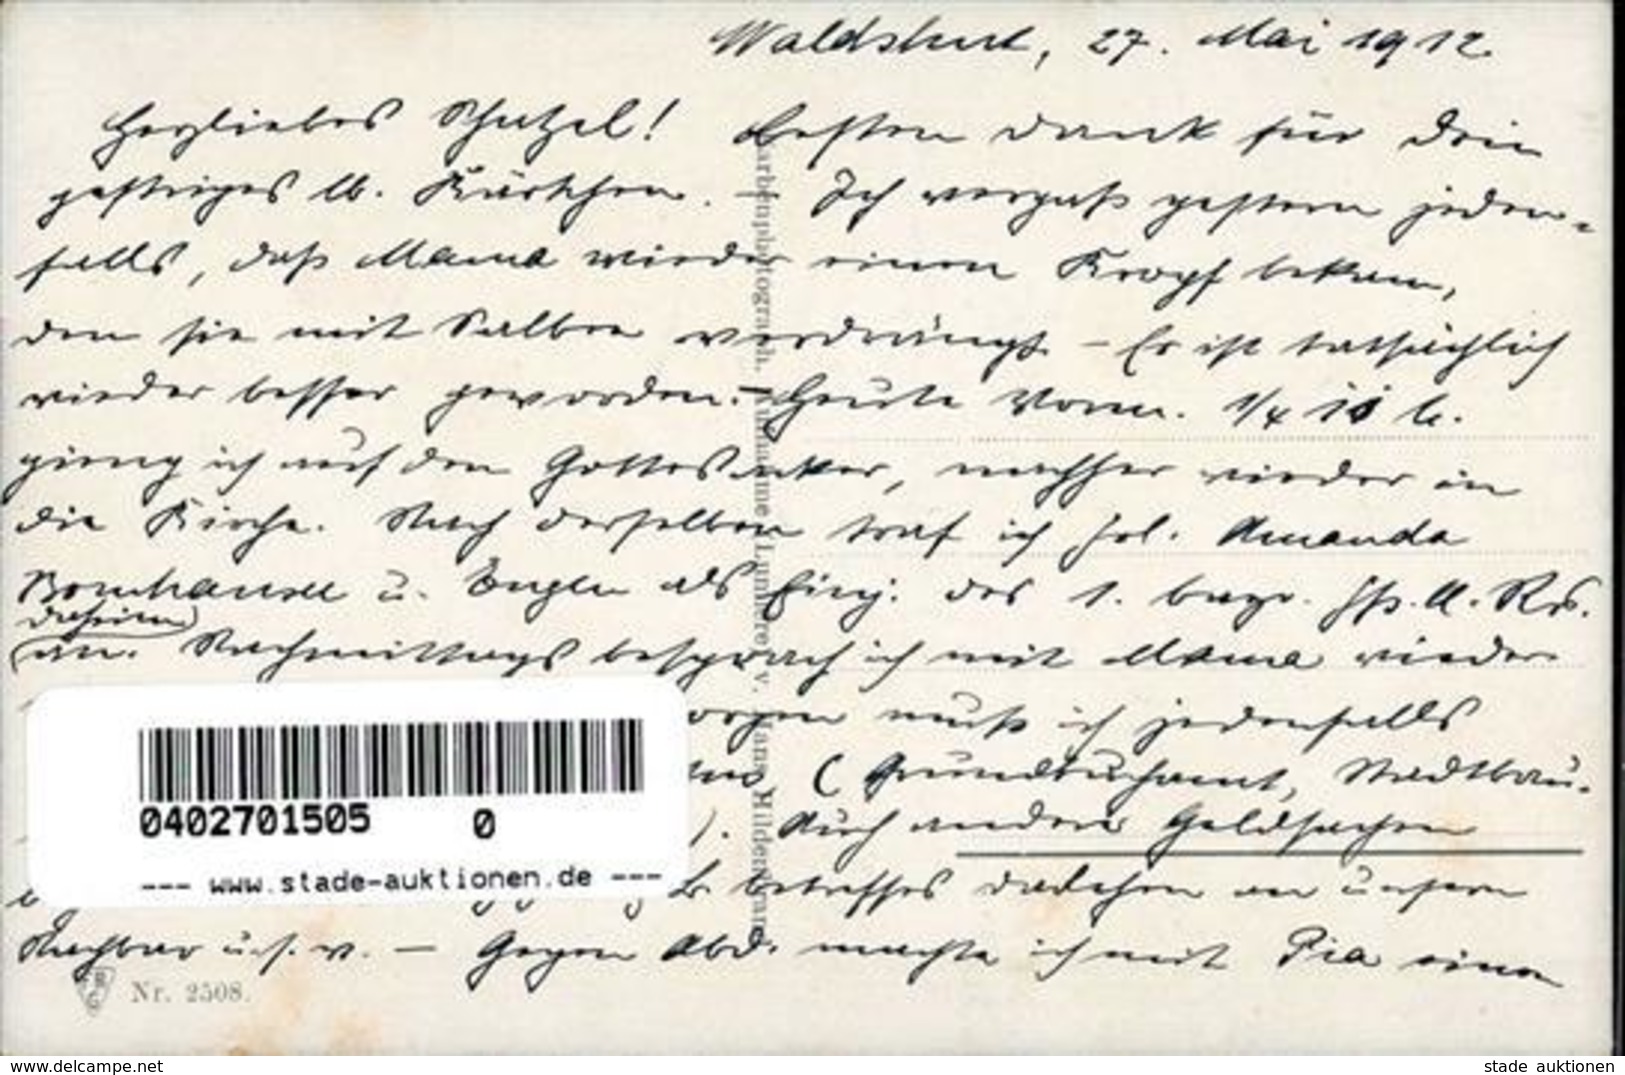 Waldshut, 27. Mai 1912.
Herzliebes Schatzel! Besten Dank für Dein
gestriges lb. Kärtchen. Ich vergaß gestern jeden-
falls, daß Mama wieder einen Kropf bekam,
den sie mit Salben verdrängt. – Er ist tatsächlich
wieder besser geworden. – Heute Vorm. 1/4 11 h.
gieng ich auf den Gottesacker, nachher wieder in
die Kirche. Nach derselben traf ich Frl. Amanda
Bornhauser u. als Einj. des 1. bayr.
daheim
an. Nachmittags besprach ich mit Mama wieder
morgen muß ich jedenfalls
(Grundbuchamt, Stadtbau-
). Auch andere Geldsachen
betreffs Darlehen an unsern
Nachbar u.s.w. – Gegen Abd. machte ich mit Pia einen
Farbenphotograph. Aufnahme Lumière v. Hans Hildenbrand
Nr. 2508.
0402701505 0
--- www.stade-auktionen.de ---
delcampe.net
stade auktionen